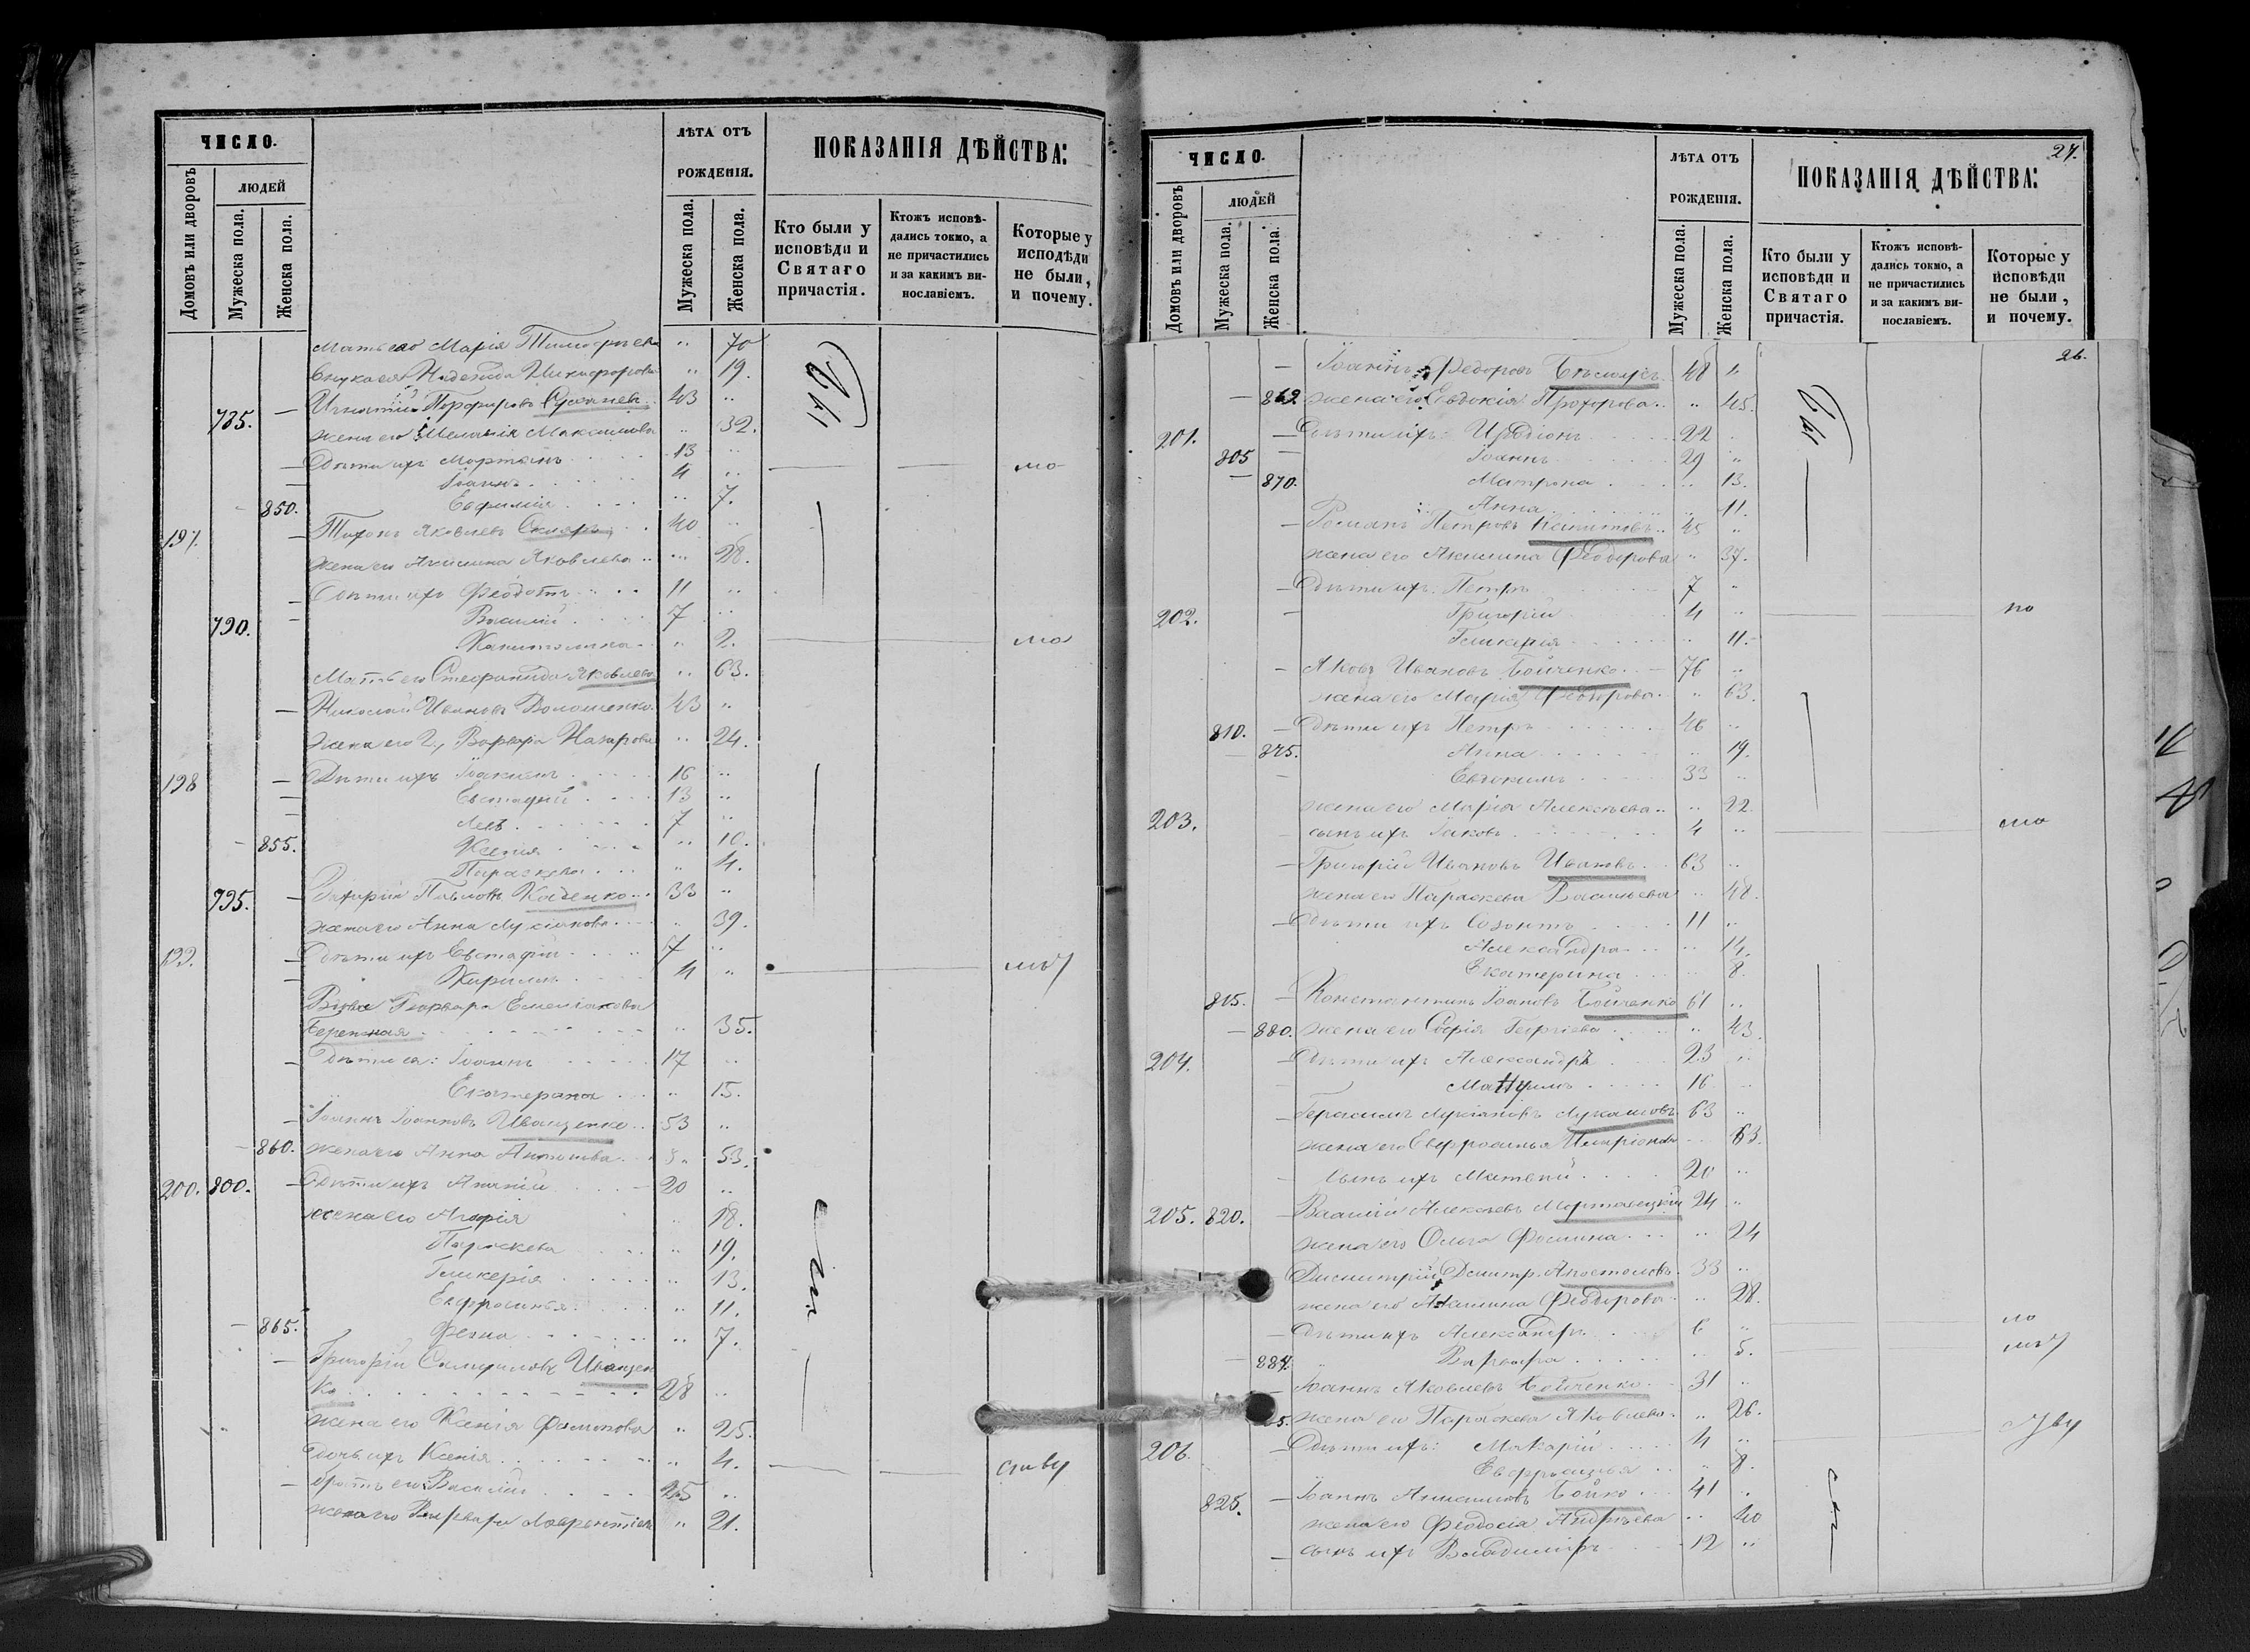 ЧИСЛО.
Домовъ или дворовъ
ЛЮДЕЙ
Мужеска пола.
Женска пола.
ЛѢТА ОТЪ
РОЖДЕНІЯ.
Мужеска пола.
Женска пола.
ПОКАЗАНІЯ ДѢЙСТВА:
Кто были у
исповѣди и
Святаго
причастія.
Ктожъ исповѣ-
дались токмо, а
не причастились
и за какимъ ви-
нославіемъ.
Которые у
исподѣди
не были,
и почему.
Мать его Марія Тимофѣева " 70
Внука ея Надежда Никифорова " 19.
785. — Игнатій Порфировъ 43 "
жена его Меланія Максимова " 32.
— Дѣти ихъ 13 "
— Іоаннъ 4 " мо
850. Евфимія " 7.
197. — Тихонъ Яковлевъ Скляръ 40 "
жена его Акилина Яковлева " 28.
— Дѣти ихъ Феодотъ 11 "
790. — Василій 7 "
Капитолина " 2. мо
Мать его Стефанида Яковлева " 63.
— Николай Ивановъ Волошенко 43 "
жена его 2, Варвара Назарова " 24.
198 — Дѣти ихъ Іоакимъ 16 "
— Евстафій 13 "
— Левъ 7 "
855. Ксенія " 10.
Параскева " 4.
795. — Захарій Павловъ Коденко 33 "
жена его Анна Лукіанова " 39.
199. — Дѣти ихъ Евстафій 7 "
— Кириллъ 4 "
Вдова Варвара Емеліанова
Бережная " 35.
— Дѣти ея: Іоаннъ 17 "
Екатерина " 15.
— Іоаннъ Іоанновъ Иващенко 53 "
860. жена его Анна Антонова " 53.
200. 800. — Дѣти ихъ Ананій 20 "
жена его Марія " 18.
Параскева " 19.
Гликерія " 13.
Евфросинья " 11.
865. Фекла " 7.
— Григорій Самуиловъ Иващен
ко 28 "
жена его Ксенія Филипова " 25.
дочь ихъ Ксенія " 4.
— братъ его Василій 25 "
жена его Варвара Лаврентіева " 21.
27.
ЧИСЛО.
Домовъ или дворовъ
ЛЮДЕЙ
Мужеска пола.
Женска пола.
ЛѢТА ОТЪ
РОЖДЕНІЯ.
Мужеска пола.
Женска пола.
ПОКАЗАНІЯ ДѢЙСТВА:
Кто были у
исповѣди и
Святаго
причастія.
Ктожъ исповѣ-
дались токмо, а
не причастились
и за какимъ ви-
нославіемъ.
Которые у
исповѣди
не были,
и почему.
26.
— Іоаннъ Федоровъ 48 "
869 жена его Евдокія Прохорова " 45.
201. — Дѣти ихъ Иродіонъ 22
805 — Іоаннъ 29 "
870. Матрона " 13.
Анна " 11.
— Романъ Петровъ 45 "
жена его Акилина Феодорова " 37.
— Дѣти ихъ Петръ 7 "
202. — Григорій 4 " мо
Гликерія " 11.
— Яковъ Ивановъ Бойченко 76 "
жена его Марія Феодорова " 63.
810. — Дѣти ихъ Петръ 46 "
875. Анна " 19.
— Евдокимъ 33 "
жена его Марія Алексѣева " 22.
203. — сынъ ихъ Іаковъ 4 " мо
— Григорій Ивановъ Ивановъ 63 "
жена его Параскева Васильева " 48.
— Дѣти ихъ Созонтъ 11 "
Александра " 14.
Екатерина " 8.
815. — Константинъ Іоановъ Бойченко 61 "
880. жена его Софія Георгіева " 43.
204. — Дѣти ихъ Александръ 23 "
— 16 "
— Герасимъ Лукіановъ Лукашовъ 63 "
жена его Евфросинья " 63.
— сынъ ихъ Матвѣй 20 "
205. 820. — Василій Алексѣевъ 24 "
жена его Ольга Фомина " 24
Димитрій Димитр. Апостоловъ 33 "
жена его Акилина Феодорова " 28.
— Дѣти ихъ Александръ 6 " мо
884. Варвара " 5.
— Іоаннъ Яковлевъ Бойченко 31 "
жена его Параскева Яковлева " 26.
206 — Дѣти ихъ: Макарій 4 "
Евфросинья " 8.
825. — Іоаннъ Бойко 41 "
жена его Феодосія Андрѣева " 40
— сынъ ихъ Владиміръ 12 "